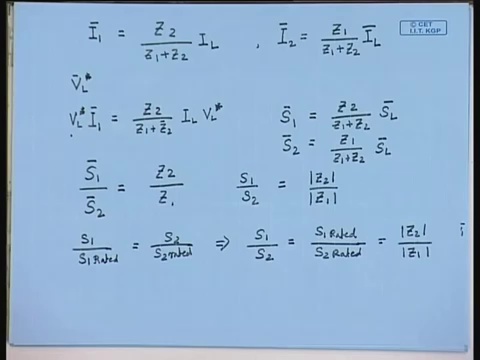 Ī₁ = Z₂/(Z₁+Z₂) I_L , Ī₂ = Z₁/(Z₁+Z₂) Ī_L
© CET
I.I.T. KGP
V̄_L*
V_L* Ī₁ = Z₂/(Z₁+Z₂) I_L V_L*
S̄₁ = Z₂/(Z₁+Z₂) S̄_L
S̄₂ = Z₁/(Z₁+Z₂) S̄_L
S̄₁/S̄₂ = Z₂/Z₁
S₁/S₂ = |Z₂|/|Z₁|
S₁/S₁Rated = S₂/S₂rated ⇒ S₁/S₂ = S₁Rated/S₂Rated = |Z₂|/|Z₁|